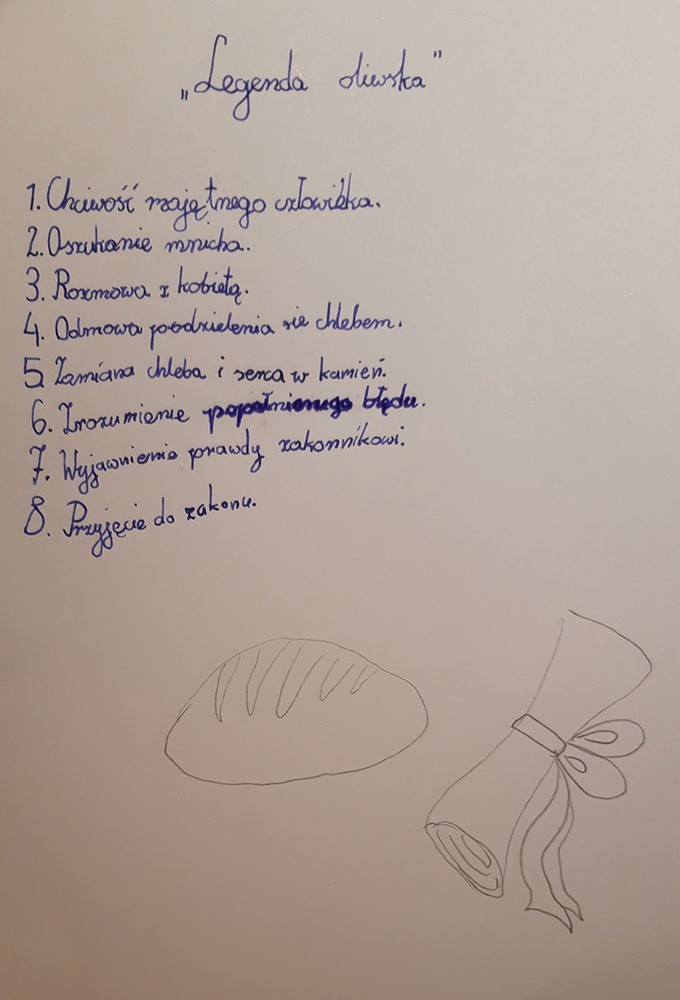 „Legenda oliwska"
1. Chciwość majętnego człowieka.
2. Oszukanie mnicha.
3. Rozmowa z kobietą.
4. Odmowa podzielenia sie chlebem.
5 Zamiana chleba i serca w kamień.
6. Zrozumienie popełnionego błędu.
7. Wyjawnienie prawdy zakonnikowi.
8. Przyjęcie do zakonu.